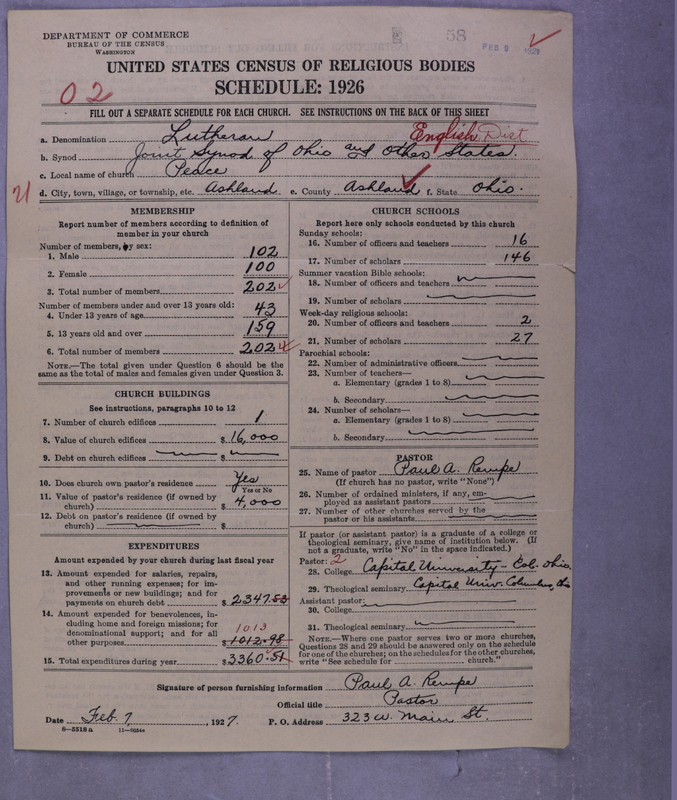 DEPARTMENT OF COMMERCE
BUREAU OF THE CENSUS
WASHINGTON
58
FEB 9
UNITED STATES CENSUS OF RELIGIOUS BODIES
SCHEDULE: 1926
02
FILL OUT A SEPARATE SCHEDULE FOR EACH CHURCH. SEE INSTRUCTIONS ON THE BACK OF THIS SHEET
a. Denomination Lutheran English Dist
b. Synod Joint Synod of Ohio and Other States.
c. Local name of church Peace
21
d. City, town, village, or township, etc. Ashland e. County Ashland f. State Ohio.
MEMBERSHIP
Report number of members according to definition of
member in your church
Number of members, by sex:
1. Male 102
2. Female 100
3. Total number of members 202
Number of members under and over 13 years old:
4. Under 13 years of age 43
5. 13 years old and over 159
6. Total number of members 202
NOTE.—The total given under Question 6 should be
same as the total of males and females given under Question 3.
CHURCH BUILDINGS
See instructions, paragraphs 10 to 12
7. Number of church edifices 1
8. Value of church edifices $ 16,000
9. Debt on church edifices $
10. Does church own pastor's residence? Yes
Yes or No
11. Value of pastor's residence (if owned by
church) $ 4,000
12. Debt on pastor's residence (if owned by
church) $
EXPENDITURES
Amount expended by your church during last fiscal year
13. Amount expended for salaries, repairs,
and other running expenses; for im-
provements or new buildings; and for
payments on church debt $ 2347.53
14. Amount expended for benevolences, in-
cluding home and foreign missions; for
denominational support; and for all
1013
other purposes $ 1012.98
15. Total expenditures during year $ 3360.51
CHURCH SCHOOLS
Report here only schools conducted by this church
Sunday schools:
16. Number of officers and teachers 16
17. Number of scholars 146
Summer vacation Bible schools:
18. Number of officers and teachers
19. Number of scholars
Week-day religious schools:
20. Number of officers and teachers 2
21. Number of scholars 27
Parochial schools:
22. Number of administrative officers
23. Number of teachers—
a. Elementary (grades 1 to 8)
b. Secondary
24. Number of scholars—
a. Elementary (grades 1 to 8)
b. Secondary
PASTOR
25. Name of pastor Paul A. Rempe
(If church has no pastor, write "None")
26. Number of ordained ministers, if any, em-
ployed as assistant pastors
27. Number of other churches served by the
pastor or his assistants
If pastor (or assistant pastor) is a graduate of a college or
theological seminary, give name of institution below. (If
not a graduate, write "No" in the space indicated.)
Pastor: 2
28. College Capital University - Col. Ohio.
29. Theological seminary Capital Univ. Columbus, Ohio
Assistant pastor:
30. College
31. Theological seminary
NOTE.—Where one pastor serves two or more churches,
Questions 28 and 29 should be answered only on the schedule
for one of the churches; on the schedules for the other churches,
write "See schedule for church."
Signature of person furnishing information Paul A. Rempe
Official title Pastor
Date Feb. 7, 1927. P. O. Address 323 W. Main St.
8-5518 a